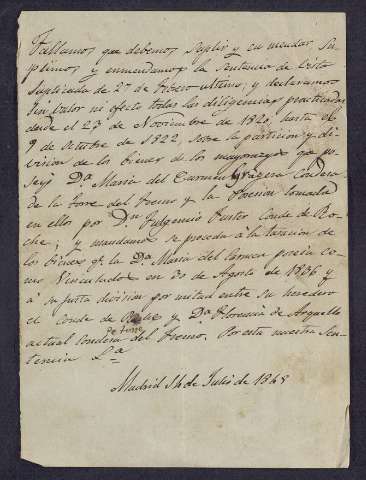 Fallamos que debemos suplir y enmendar su-
plimos y enmendamos la sentencia de vista
suplicada de 27 de Febrero ultimo; y declaramos
sin valor ni efecto todas las diligencias practicadas
desde el 27 de Noviembre de 1820, hasta el
9 de Octubre de 1822, sobre la particion y di-
vision de los bienes de los mayorazgos que po-
seyó Dª. Maria del Carmen Condesa
de la Torre del Fresno y la posesion tomada
en ellos por Dn Fulgencio Fuster Conde de Ro-
che; y mandamos se proceda á la tasacion de
los bienes qe. la Dª. Maria del Carmen poseia co-
mo Vinculados en 30 de Agosto de 1836 y
á su justa division por mitad entre su heredero
el Conde de Roche y Dª Florencia de Arguello
actual Condesa de Torre del Fresno. Por esta nuestra Sen-
tencia &ª
Madrid 14 de Julio de 1848